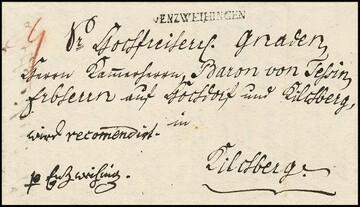 V.ENZWEIHINGEN
Sr Hochfreiherrl. Gnaden,
Herrn Kammerherrn, Baron von Tessin,
Erbherrn auf Hochdorf und Kilchberg,
wird recomendirt.
in
Kilchberg.
p Enzweihing.